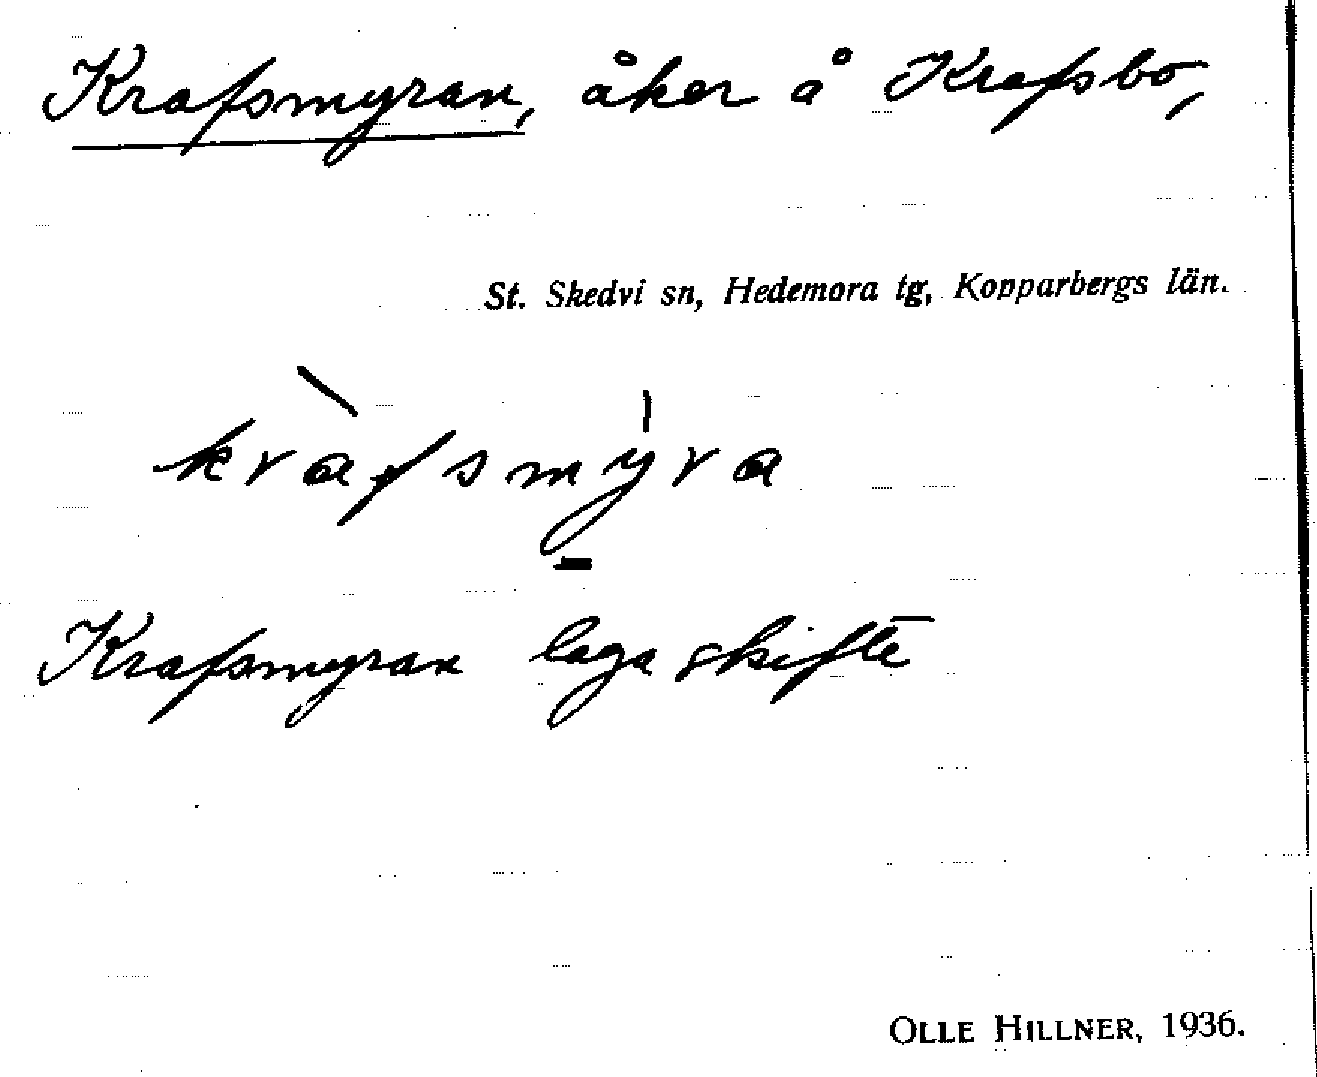 Krafsmyran, åker å Krafsbo,
St. Skedvi sn, Hedemora tg, Kopparbergs län.
kràfsmy̠̍ra
Krafsmyran laga skifte
OLLE HILLNER, 1936.